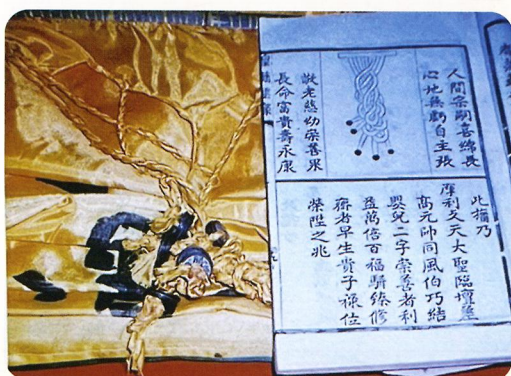 人間宗嗣喜綿長
心地無虧自主張
敬老慈幼榮善果
長命富貴壽永康
此旛乃
摩利攴天大聖臨壇
高元帥同風伯巧結
嬰兒二字崇善者利
益萬倍百福駢臻修
齋者早生貴子祿位
榮陞之兆